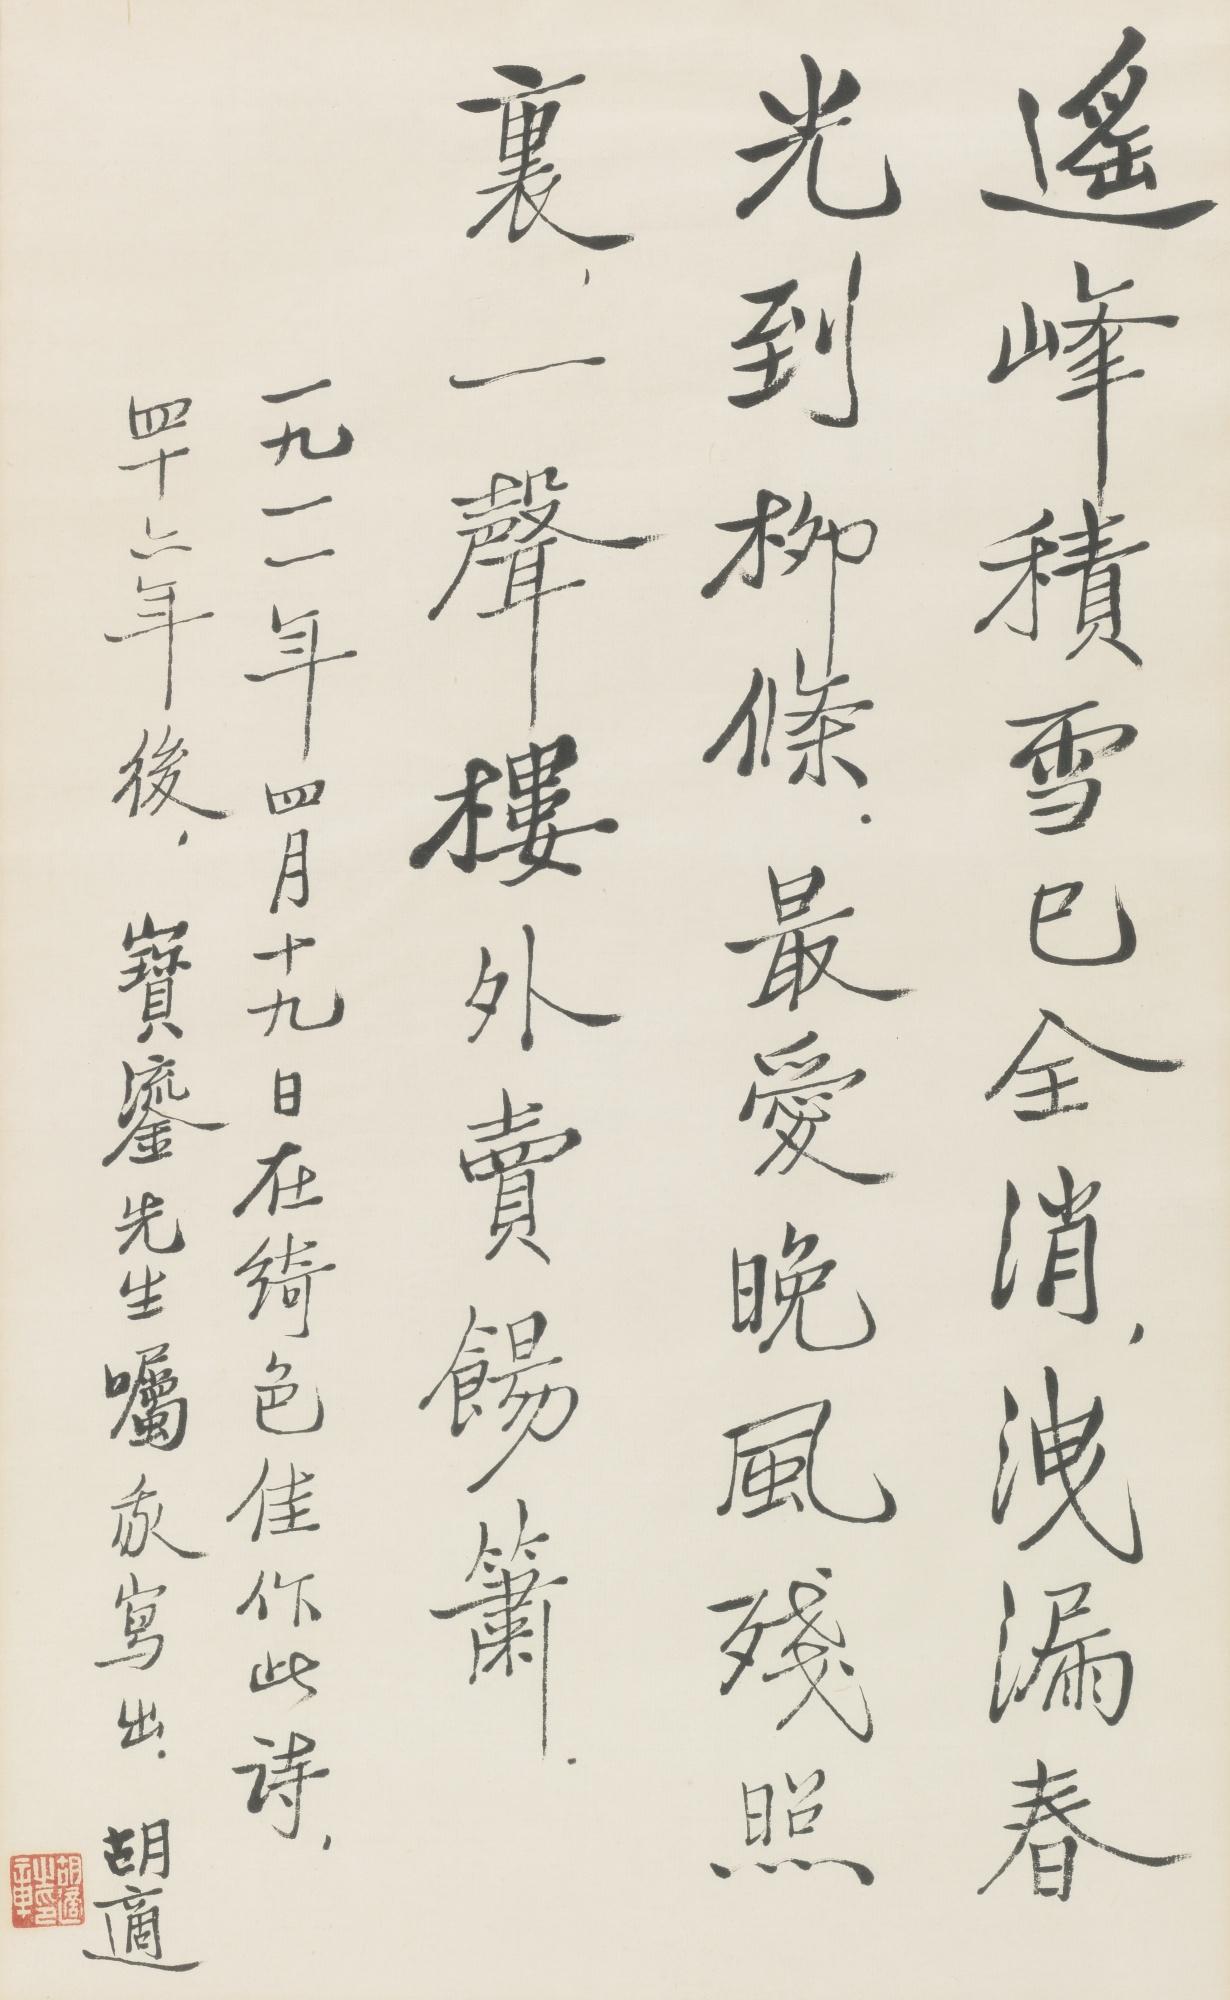 遙峰積雪已全消，洩漏春
光到柳條．最愛晚風殘照
裏，一聲樓外賣餳簫．
一九一一年四月十九日在綺色佳作此詩，
四十六年後，寶鎏先生囑我寫出．胡適
胡適之印章